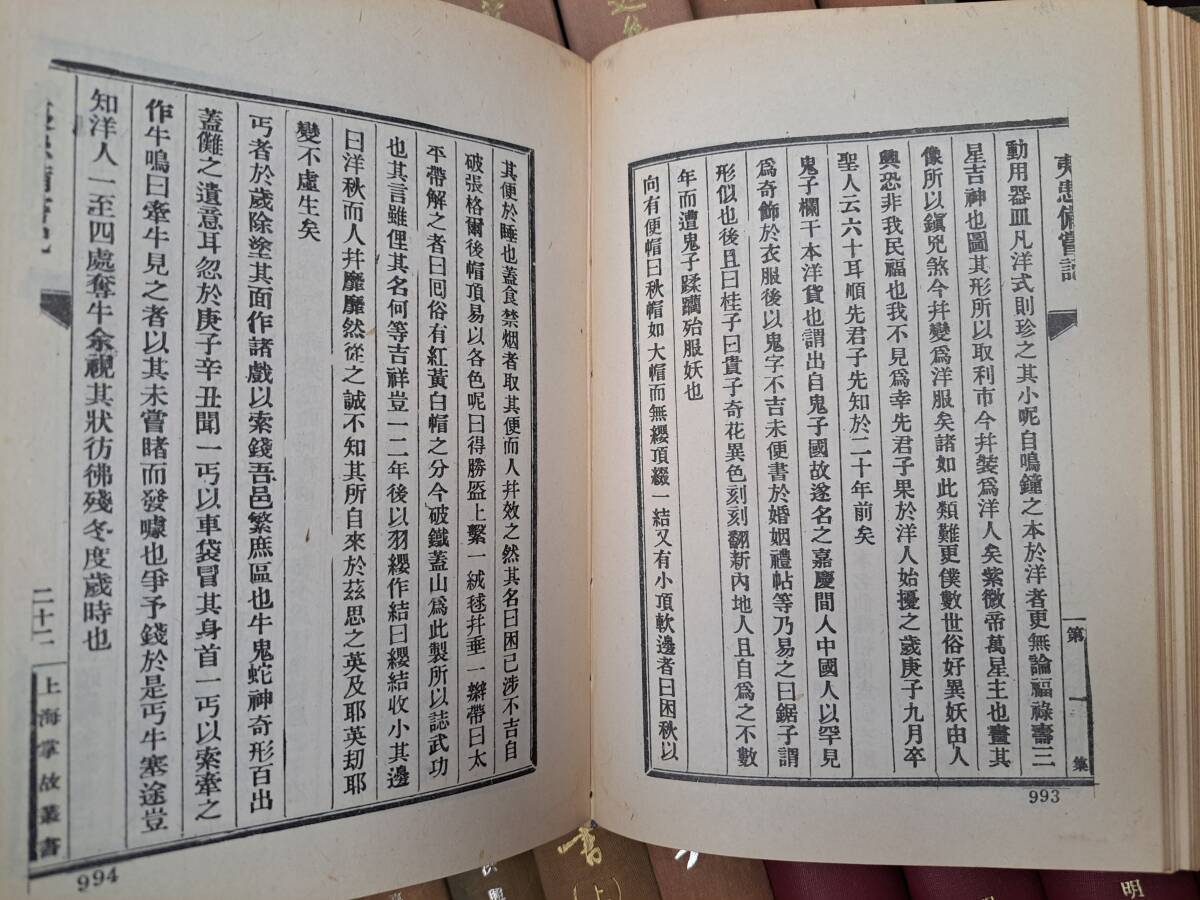 夷患備嘗記
第一集
993
動用器皿凡洋式則珍之其小呢自鳴鐘之本於洋者更無論福祿壽三
星吉神也圖其形所以取利市今幷裝爲洋人矣紫微帝萬星主也畫其
像所以鎭兇煞今幷變爲洋服矣諸如此類難更僕數世俗好異妖由人
興恐非我民福也我不見爲幸先君子果於洋人始擾之歲庚子九月卒
聖人云六十耳順先君子先知於二十年前矣
鬼子欄干本洋貨也謂出自鬼子國故遂名之嘉慶間人中國人以罕見
爲奇飾於衣服後以鬼字不吉未便書於婚姻禮帖等乃易之曰鋸子謂
形似也後且曰桂子曰貴子奇花異色刻刻翻新內地人且自爲之不數
年而遭鬼子蹂躪殆服妖也
向有便帽曰秋帽如大帽而無纓頂綴一結又有小頂軟邊者曰困秋以
其便於睡也蓋食禁烟者取其便而人幷效之然其名曰困已涉不吉自
破張格爾後帽頂易以各色呢曰得勝盔上繫一絨毬幷垂一辮帶曰太
平帶解之者曰回俗有紅黃白帽之分今破鐵蓋山爲此製所以誌武功
也其言雖俚其名何等吉祥豈一二年後以羽纓作結曰纓結收小其邊
曰洋秋而人幷靡靡然從之誠不知其所自來於茲思之英及耶英刧耶
變不虛生矣
丐者於歲除塗其面作諸戲以索錢吾邑繁庶區也牛鬼蛇神奇形百出
蓋儺之遺意耳忽於庚子辛丑聞一丐以車袋冒其身首一丐以索牽之
作牛鳴曰牽牛見之者以其未嘗睹而發噱也爭予錢於是丐牛塞途豈
知洋人一至四處奪牛余視其狀彷彿殘冬度歲時也
二十二
上海掌故叢書
994
書
(上)
明